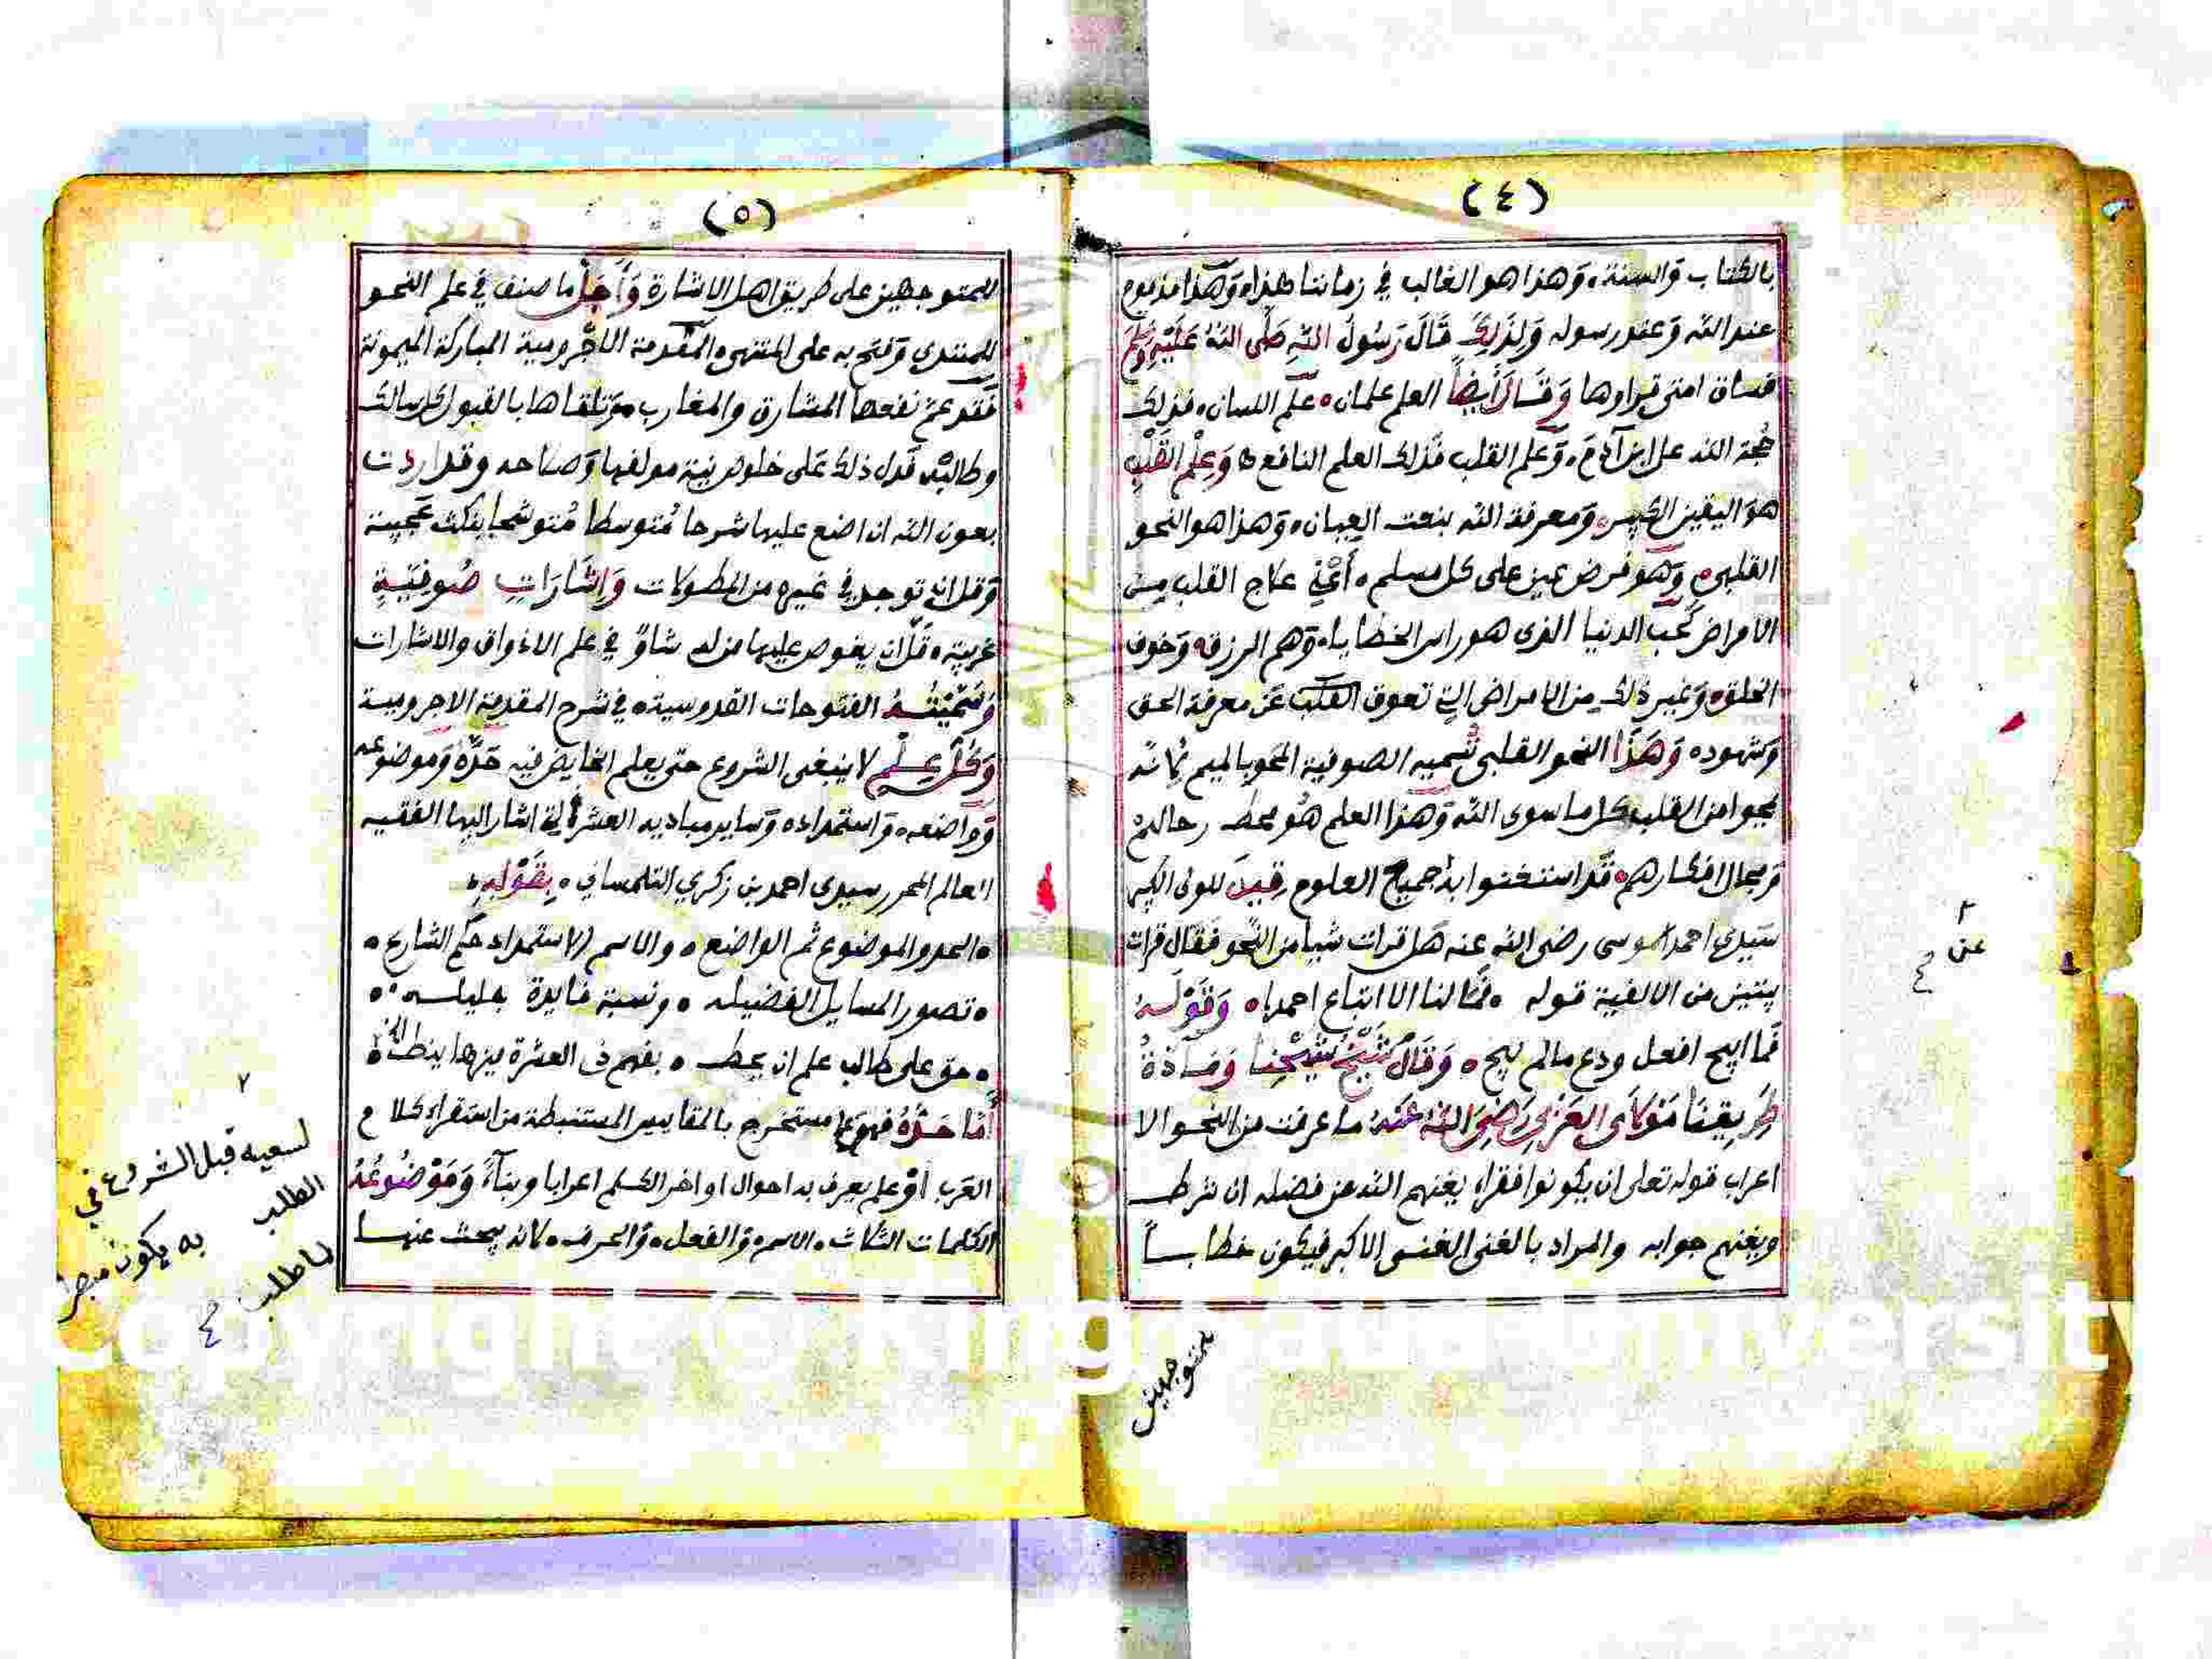 (٤)
بالكتاب والسنة، وهذا هو الغالب في زماننا هذا، وهذا مذموم
عند الله وعند رسوله ولذلك قال رسول الله صلى الله عليه وسلم
فساق امتى قراوها وقال أيضاً العلم علمان، علم اللسان، فذلك
حجة الله على ابن آدم، وعلم القلب فذلك العلم النافع، وعلم القلب
هو اليقين الكبير، ومعرفة الله بنعت العيان، وهذا هو النحو
القلبى، وهو فرض عين على كل مسلم، أعني علاج القلب من
الأمراض كحب الدنيا الذى هو راس الخطايا، وهم الرزق، وخوف
الخلق، وغير ذلك من الامراض التي تعوق القلب عن معرفة الحق
وشهوده وهذا النحو القلبى تسميه الصوفية المحو بالميم لانه
يمحوا من القلب كل ما سوى الله وهذا العلم هو محط رحالهم
ومجال افكارهم، قد استغنوا به جميع العلوم قيل للولى الكبير
سيدى احمد ابن موسى رضى الله عنه هل قرات شيا من النحو فقال قرات
بيتين من الالفية قوله، فما لنا الا اتباع احمدا، وقوله
فما ابيح افعل ودع ما لم يبح، وقال شيخ شيخنا ومادة
طريقنا مولاى العربي رضى الله عنه ما عرفت من النحو الا
اعراب قوله تعلى ان يكونوا فقراء يغنهم الله من فضله ان شرط
ويغنهم جوابه والمراد بالغنى الغنى الاكبر فيكون خطابـاً
للمتوجهين
عن
(٥)
للمتوجهين على طريق اهل الاشارة وأجل ما صنف في علم النحو
للمبتدى وفتح به على المنتهى، المقدمة الاجرومية المباركة الميمونة
فقد عم نفعها المشارق والمغارب، وتلقاها بالقبول كل سالك
وطالب، فدل ذلك على خلوص نية مولفها وصلاحه وقد اردت
بعون الله ان اضع عليها شرحا متوسطا متوشحا بنكث عجيبة
وقل ان توجد في غيره من المطولات وإشارات صوفية
غريبة، قل ان يغوص عليها من له شاو في علم الاذواق والاشارات
وسميته الفتوحات القدوسية، في شرح المقدمة الاجرومية
وكل علم لا ينبغى الشروع حتى يعلم الخايض فيه حده وموضوعه
وواضعه، واستمداده وساير مباديه العشرة التي اشار اليها الفقيه
العالم المحرر سيدى احمد بن زكري التلمساني، بقوله،
، الحد والموضوع ثم الواضع، والاسم الاستمداد حكم الشارع،
، تصور المسايل الفضيله، ونسبة فايدة جليله،
، حق على طالب علم ان يحط، بفهم ذى العشرة
أما حده فهو علم مستخرج بالمقاييس المستنبطة من استقراء كلام
العرب أو علم يعرف به احوال اواخر الكلم اعرابا وبناءً وموضوعه
الكلمات الثلاث، الاسم، والفعل، والحرف، لانه يبحث عنها
لسعيه قبل الشروع في
الطلب به يكون مبصرا
لما طلب